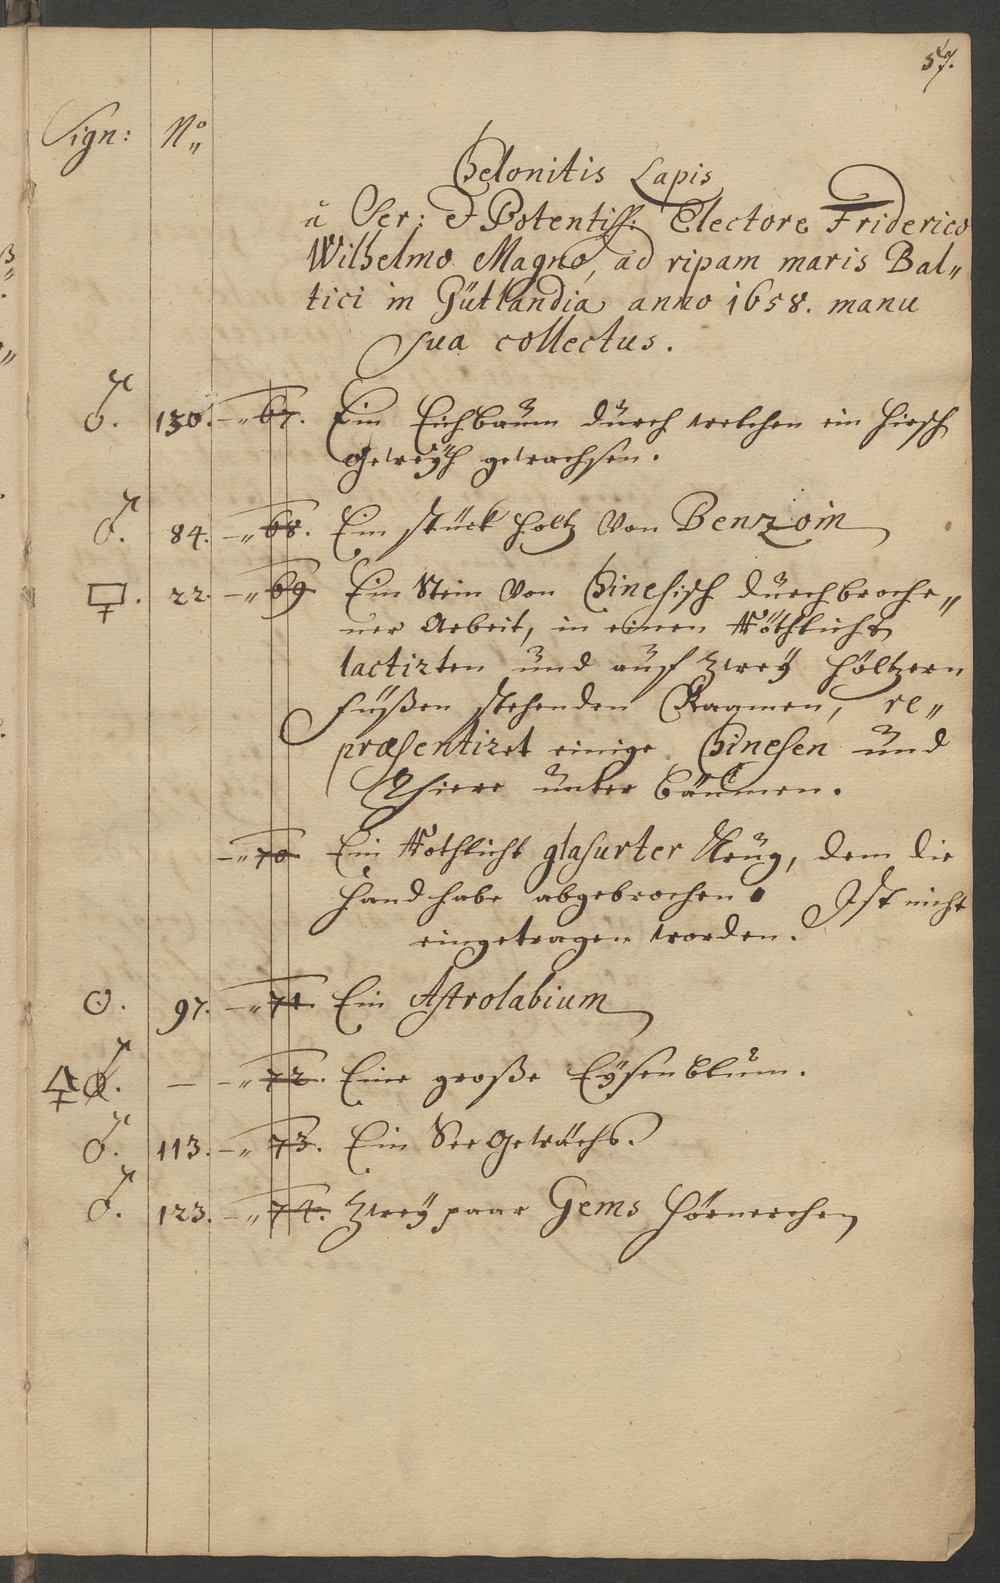 57.
Sign: No
Chelonitis Lapis
à Ser: & Potentiss: Electore Friderico
Wilhelmo Magno, ad ripam maris Bal„
tici in Jütlandia anno 1658. manu
sua collectus.
♂. 130. –„ 67. Ein Eichbaum durch welchen ein Hirsch
Geweÿh gewachsen.
♂. 84. –„ 68. Ein stück Holtz von Benzoin
22. –„ 69. Ein Stein von Chinesisch durchbroche„
ner Arbeit, in einen Röthlicht
lactirten und auf zweÿ höltzern
füßen stehenden Raamen, re„
præsentiret einige Chinesen und
Thiere unter bäumen.
–„ 70. Ein Rothlicht glasurter Krug, dem die
handhabe abgebrochen. Ist nicht
eingetragen worden.
☉. 97. –„ 71. Ein Astrolabium
♂. – –„ 72. Eine große Eÿsenblum.
♂. 113. –„ 73. Ein See Gewächs.
♂. 123. –„ 74. Zweÿ paar Gems hörnerchen